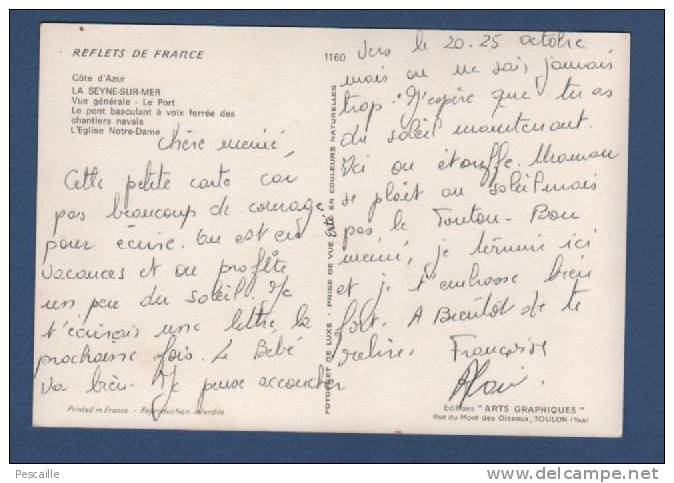 REFLETS DE FRANCE
1160
Côte d'Azur
LA SEYNE-SUR-MER
Vue générale - Le Port
Le pont basculant à voie ferrée des
chantiers navals
L'Eglise Notre-Dame
Chère mémé,
Cette petite carte car
pas beaucoup de courage
pour écrire. On est en
vacances et on profite
un peu du soleil. Je
t'écrirais une lettre la
prochaine fois. Le Bébé
va bien. Je pense accoucher
Vers le 20.25 octobre
mais on ne sais jamais
trop. J'espère que tu as
du soleil maintenant.
Ici on étouffe. Maman
se plait au soleil mais
pas le Tonton - Bon
mémé, je termine ici
et je t'embrasse bien
fort. A Bientôt de te
relire. Françoise
Alain.
FOTOGRET DE LUXE - PRISE DE VUE EN COULEURS NATURELLES
Printed in France - Reproduction interdite
Editions "ARTS GRAPHIQUES"
Rue du Mont des Oiseaux, TOULON (VAR)
Pescaille
www.delcampe.net